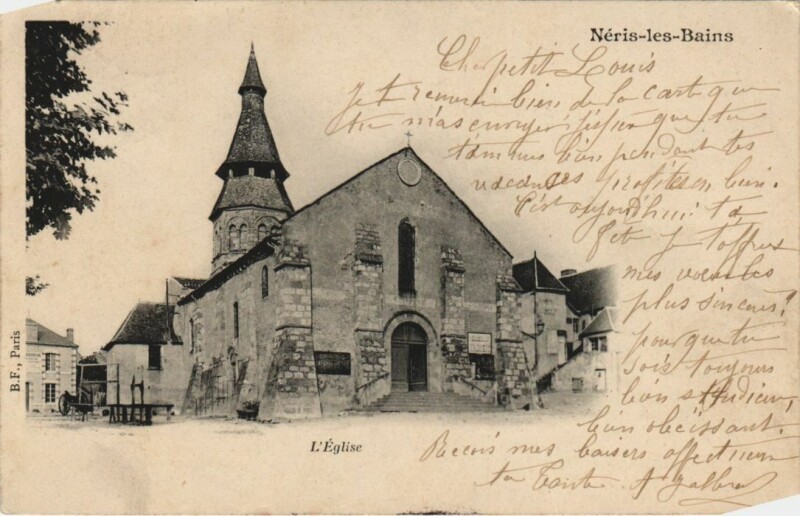 Néris-les-Bains
Cher petit Louis
Je te remercie bien de la carte que
tu m'as envoyer j'éspère que tu
t'amuses bien pendant tes
vacances profites en bien.
C'est aujourd'hui ta
fête je t'offres
mes voeux les
plus sincères
pour que tu
sois toujours
bon studieux,
bien obéissant.
Recois mes baisers affectueux
ta Tante. A
L'Église
B.F., Paris